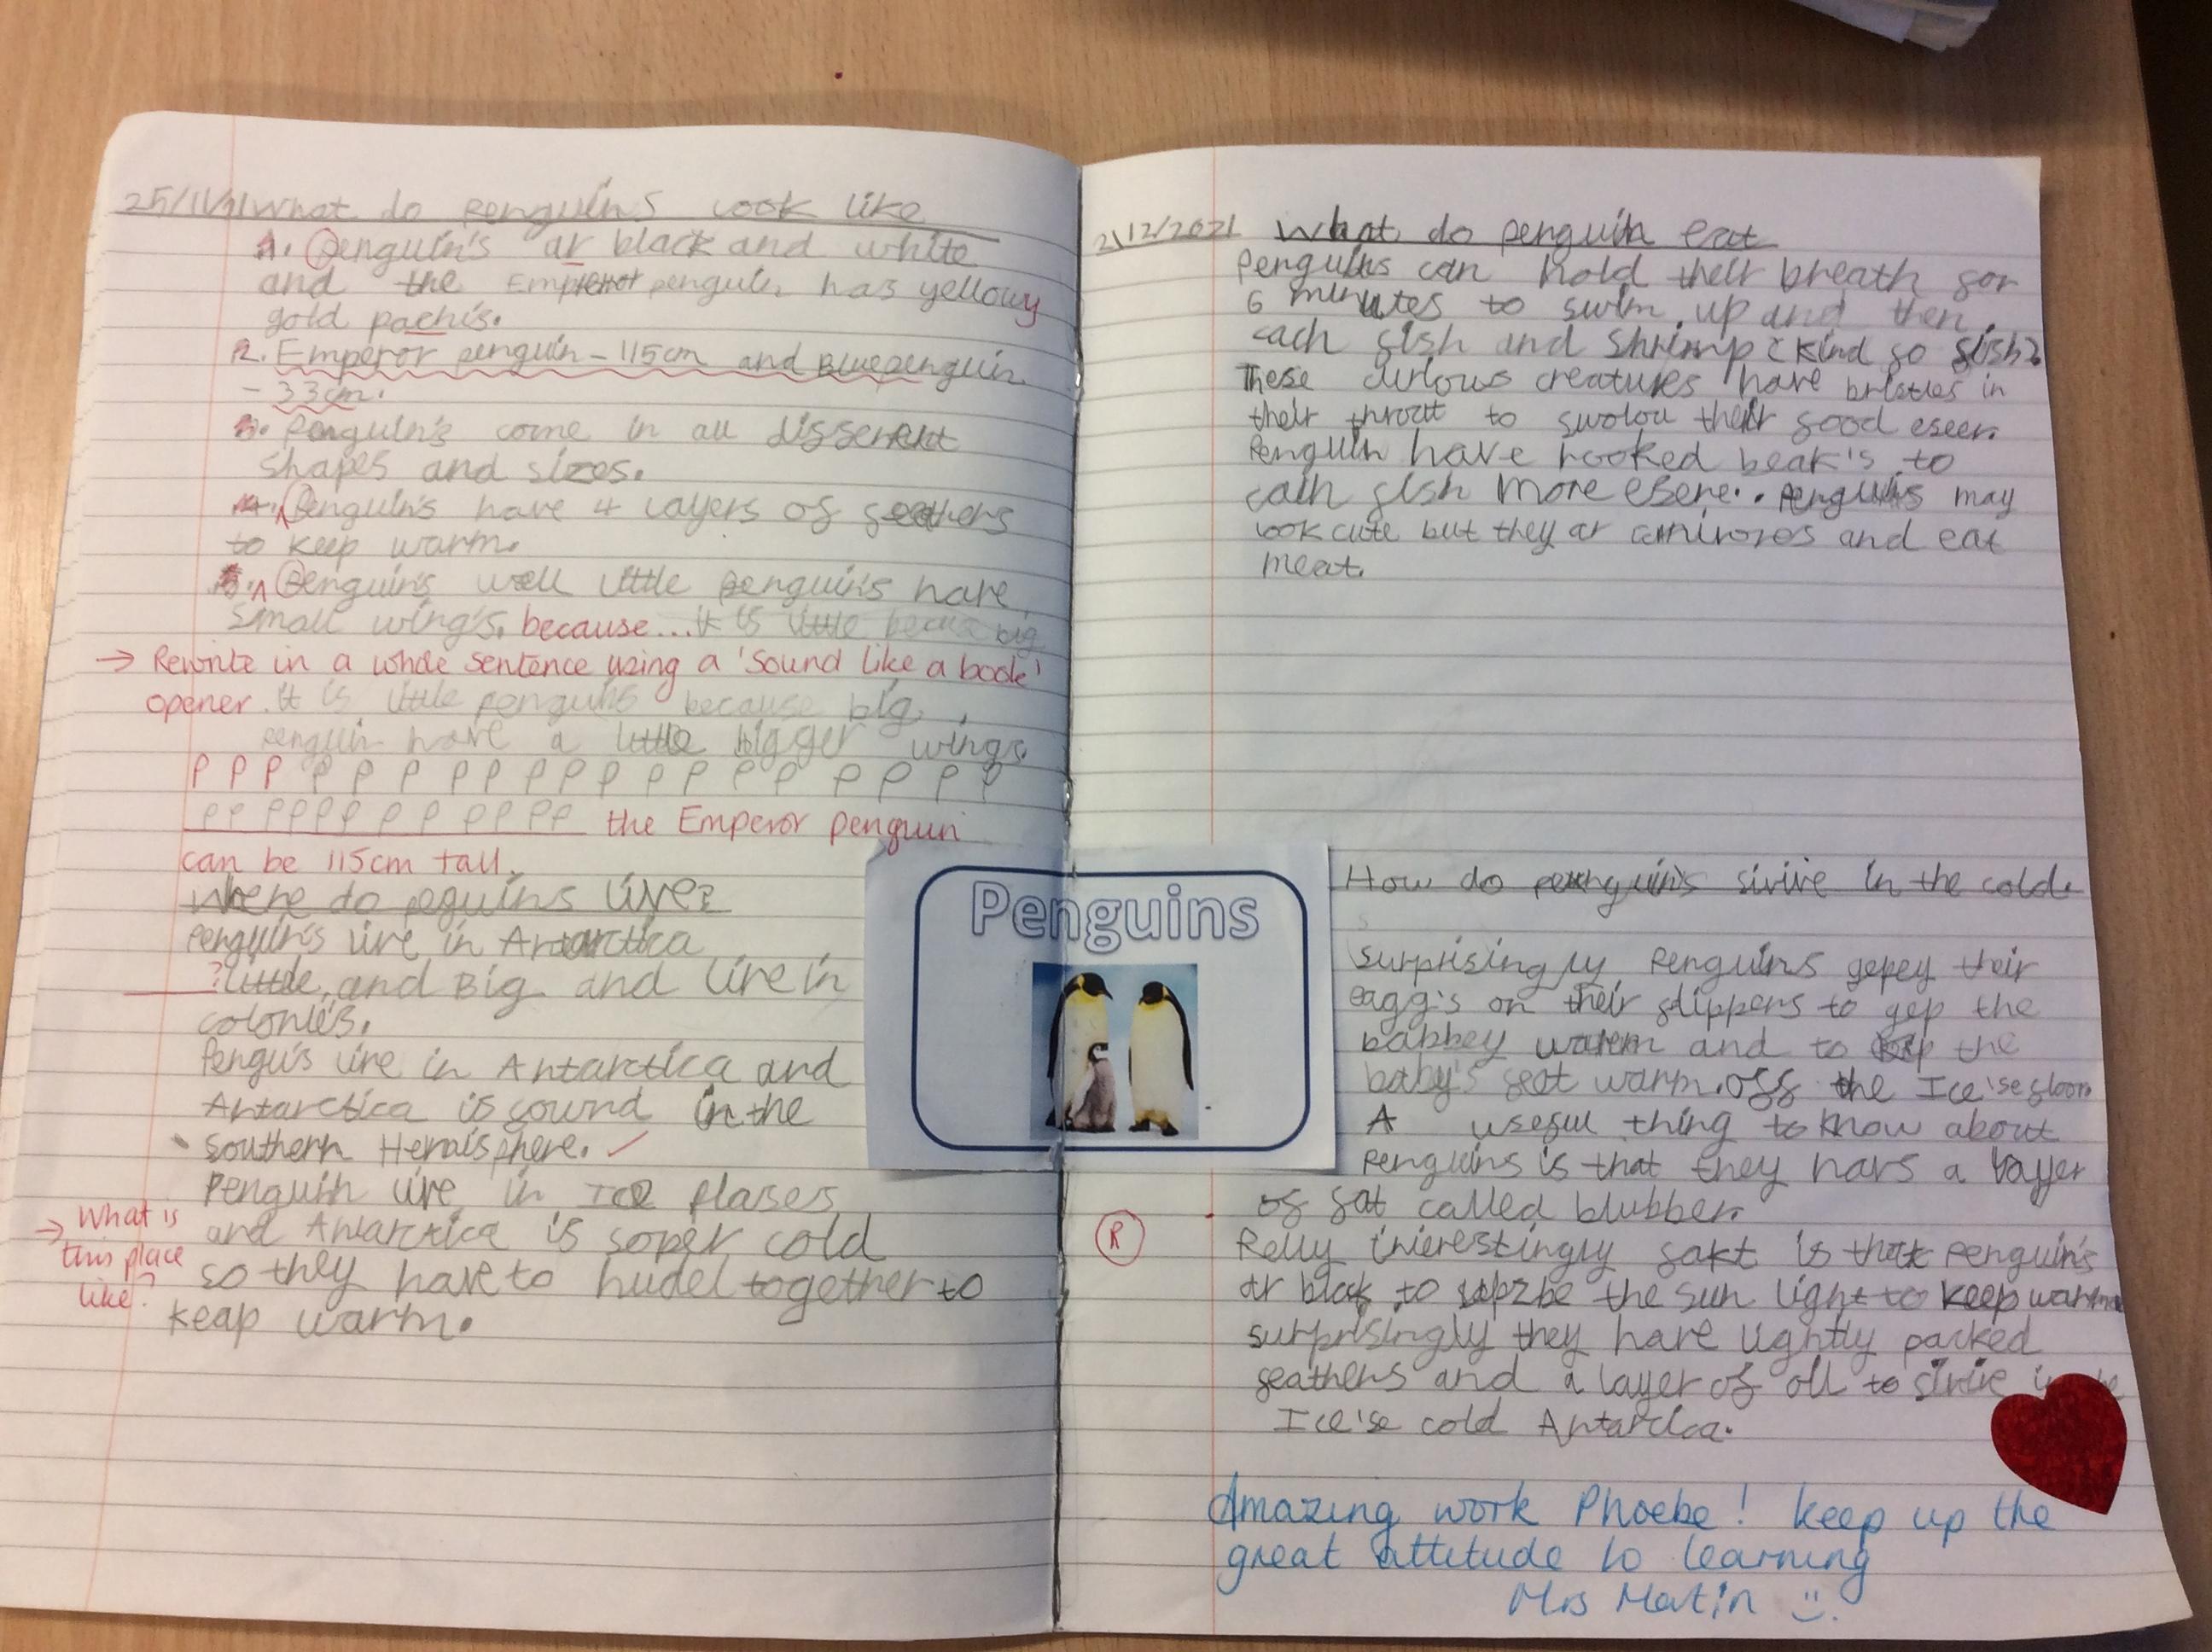 25/11/21 What do penguins look like
1. Penguin's ar black and white
and the Emp penguin has yellowy
gold pachis.
2. Emperor penguin - 115cm and Bluepenguin
- 33cm.
3. Penguin's come in all disserent
shapes and sizes.
4. Penguin's have 4 layers of feathers
to keep warm.
5. Penguin's well little penguin's have
small wing's. because... it is little big
→ Rewrite in a whole sentence using a 'sound like a book'
opener. it is little penguins because big
penguin have a little bigger wings.
P P P P P P P P P P P P P P P P P P P
P P P P P P P P P P P P P the Emperor penguin
can be 115cm tall.
Where do peguins live?
Penguin's live in Antarctica
? little, and Big and live in
colonies.
Pengu's live in Antarctica and
Antarctica is found in the
Southern Hemisphere. ✓
Penguin live in Ice plases
→ What is this place like?
and Antarctica is soper cold
so they have to hudel together to
keap warm.
2/12/2021 What do penguin eat
Penguins can hold their breath for
6 minutes to swim up and then
cach fish and Shrimp (kind fo fish)
These curious creatures have bristles in
their thrott to swolou their food eseer.
Penguin have hooked beak's to
cath fish more esere.. Penguins may
look cute but they ar and eat
meat.
Penguins
How do penguin's sirive in the cold.
Surprisingly Penguins gepey their
eagg's on their flippers to gep the
babbey warem and to kep the
baby's feet warm. off the Ice'se floor.
A useful thing to know about
Penguins is that they havs a layyer
of fat called blubber.
R
Relly interestingly fakt is that Penguin's
ar black to the sun light to keep warm
surprisingly they have lightly packed
feathers and a layer of oil to sirive
Ice'se cold Antarcica.
Amazing work Phoebe! keep up the
great attitude to learning
Mrs Martin